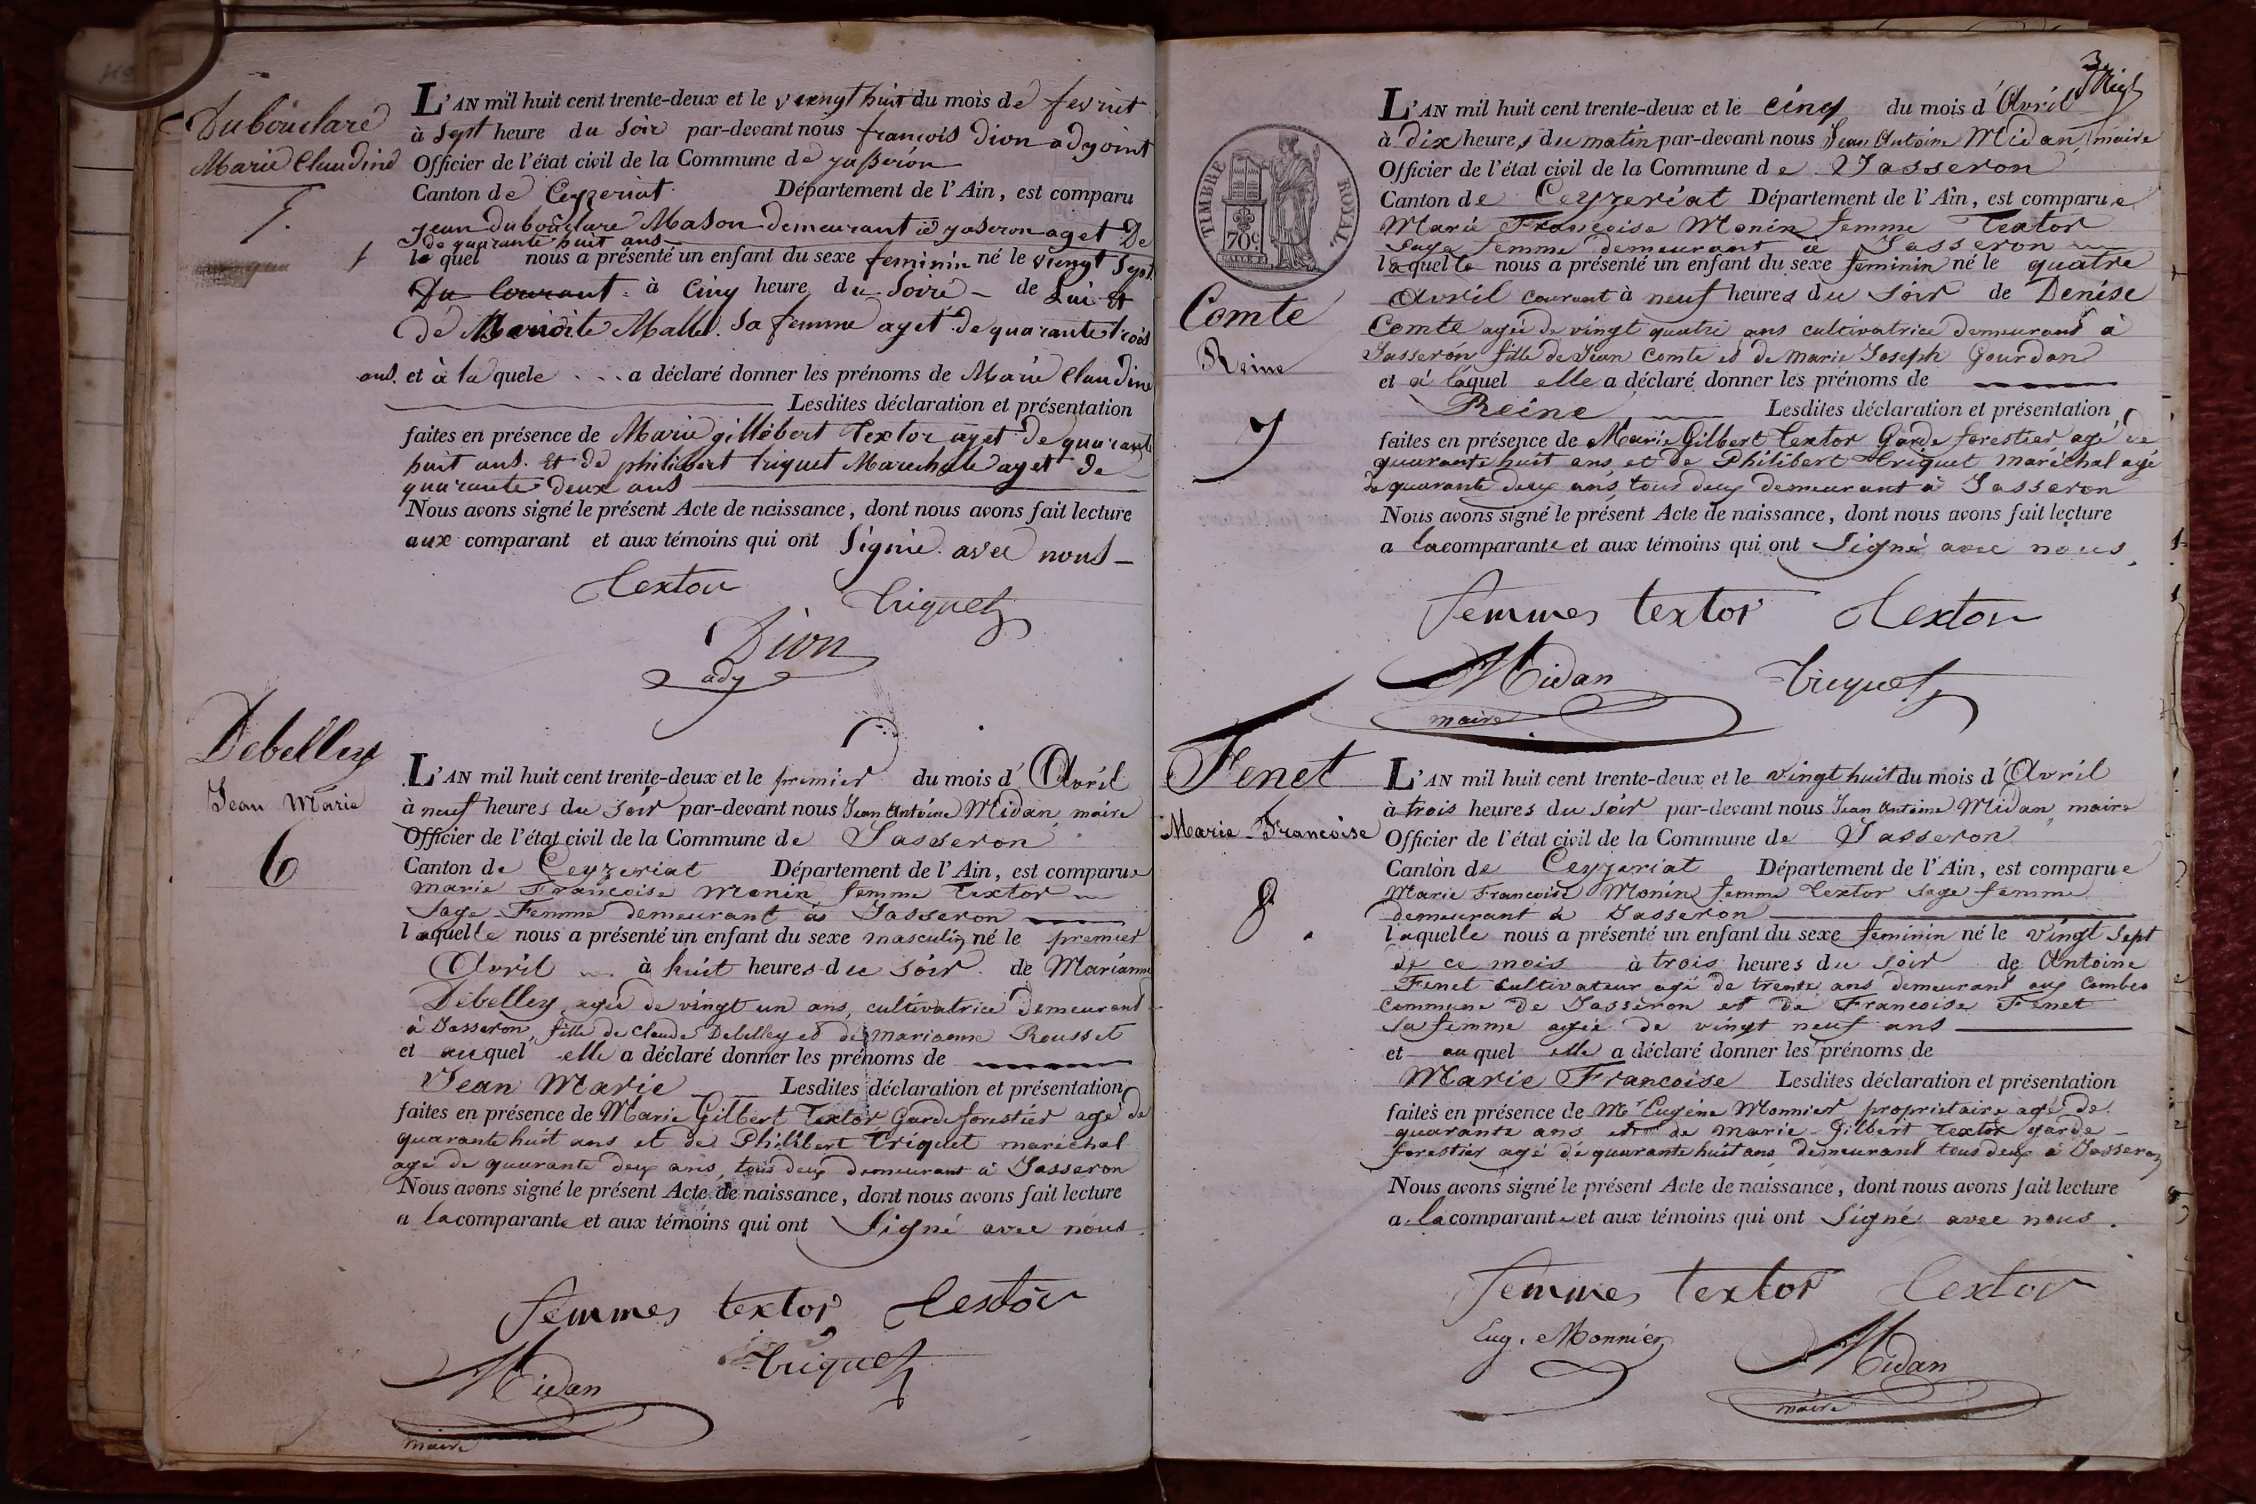 Dubouclare
Marie Claudine
5.
L'AN mil huit cent trente-deux et le viengt huit du mois de fevrié
à sept heure du soir par-devant nous francois Dion adyoint
Officier de l'état civil de la Commune de yasseron
Canton de Ceyzeriat Département de l'Ain, est comparu
jean dubouclare Mason demeurant a yaseron aget De
de quarante huit ans
le quel nous a présenté un enfant du sexe feminin né le viengt sept
Du Courant à Cinq heure du soire de Lui et
de Mallet sa femme aget de quarante trois
ans. et à la quele a déclaré donner les prénoms de Marie Claudine
Lesdites déclaration et présentation
faites en présence de Marie gillebert textor aget de quarante
huit ans. Et de philibert triquet Marechale aget de
quarante deux ans
Nous avons signé le présent Acte de naissance, dont nous avons fait lecture
aux comparant et aux témoins qui ont signié avec nous
Textor
Triquet
Dion
ady
Debelley
Jean Marie
6
L'AN mil huit cent trente-deux et le premier du mois d'Avril
à neuf heures du soir par-devant nous Jean Antoine Midan, maire
Officier de l'état civil de la Commune de Jasseron
Canton de Ceyzeriat Département de l'Ain, est comparue
marie Francoise Monin femme Textor
Sage-Femme demeurant à Jasseron
laquelle nous a présenté un enfant du sexe masculin né le premier
Avril à huit heures du soir de Marianne
Debelley agée de vingt un ans, cultivatrice demeurant
à Jasseron, fille de Claude Debelley et de marianne Rousset
et auquel elle a déclaré donner les prénoms de
Jean Marie Lesdites déclaration et présentation
faites en présence de Marie Gilbert Textor Garde forestier agé de
quarante huit ans et de Philibert Triquet maréchal
agé de quarante deux ans, tous deux demeurant à Jasseron
Nous avons signé le présent Acte de naissance, dont nous avons fait lecture
a la comparante et aux témoins qui ont Signé avec nous.
femmes textor Textor
Triquet
Midan
maire
3
L'AN mil huit cent trente-deux et le cinq du mois d'Avril
à dix heures du matin par-devant nous Jean Antoine Midan, maire
Officier de l'état civil de la Commune de Jasseron
TIMBRE ROYAL
70c
Canton de Ceyzeriat Département de l'Ain, est comparue
Marie Françoise Monin femme Textor
Sage femme demeurant à Jasseron
laquelle nous a présenté un enfant du sexe feminin né le quatre
Avril courant à neuf heures du soir de Denise
Comte
Reine
7
Comte agée de vingt quatre ans cultivatrice demeurant à
Jasseron fille de Jean Comte et de Marie Joseph Gourdan
et à laquel elle a déclaré donner les prénoms de
Reine Lesdites déclaration et présentation
faites en présence de Marie Gilbert Textor Garde forestier agé de
quarante huit ans et de Philibert Triquet maréchal agé
de quarante deux ans, tous deux demeurant à Jasseron
Nous avons signé le présent Acte de naissance, dont nous avons fait lecture
a la comparante et aux témoins qui ont Signé avec nous.
femmes textor Textor
Midan Triquet
maire
Fenet
Marie Francoise
8
L'AN mil huit cent trente-deux et le vingt huit du mois d'Avril
à trois heures du soir par-devant nous Jean Antoine Midan, maire
Officier de l'état civil de la Commune de Jasseron
Canton de Ceyzeriat Département de l'Ain, est comparue
Marie Francoise Monin femme Textor Sage-femme
demeurant à Jasseron
laquelle nous a présenté un enfant du sexe feminin né le vingt sept
de ce mois à trois heures du soir de Antoine
Fenet cultivateur agé de trente ans demeurant aux Combes
Commune de Jasseron et de Francoise Fenet
Sa femme agée de vingt neuf ans
et auquel elle a déclaré donner les prénoms de
Marie Francoise Lesdites déclaration et présentation
faites en présence de Mr Eugène Monnier propriétaire agé de
quarante ans et de Marie-Gilbert Textor garde
forestier agé de quarante huit ans demeurant tous deux à Jasseron
Nous avons signé le présent Acte de naissance, dont nous avons fait lecture
a la comparante et aux témoins qui ont Signé avec nous.
femmes textor Textor
Eug. Monnier
Midan
maire